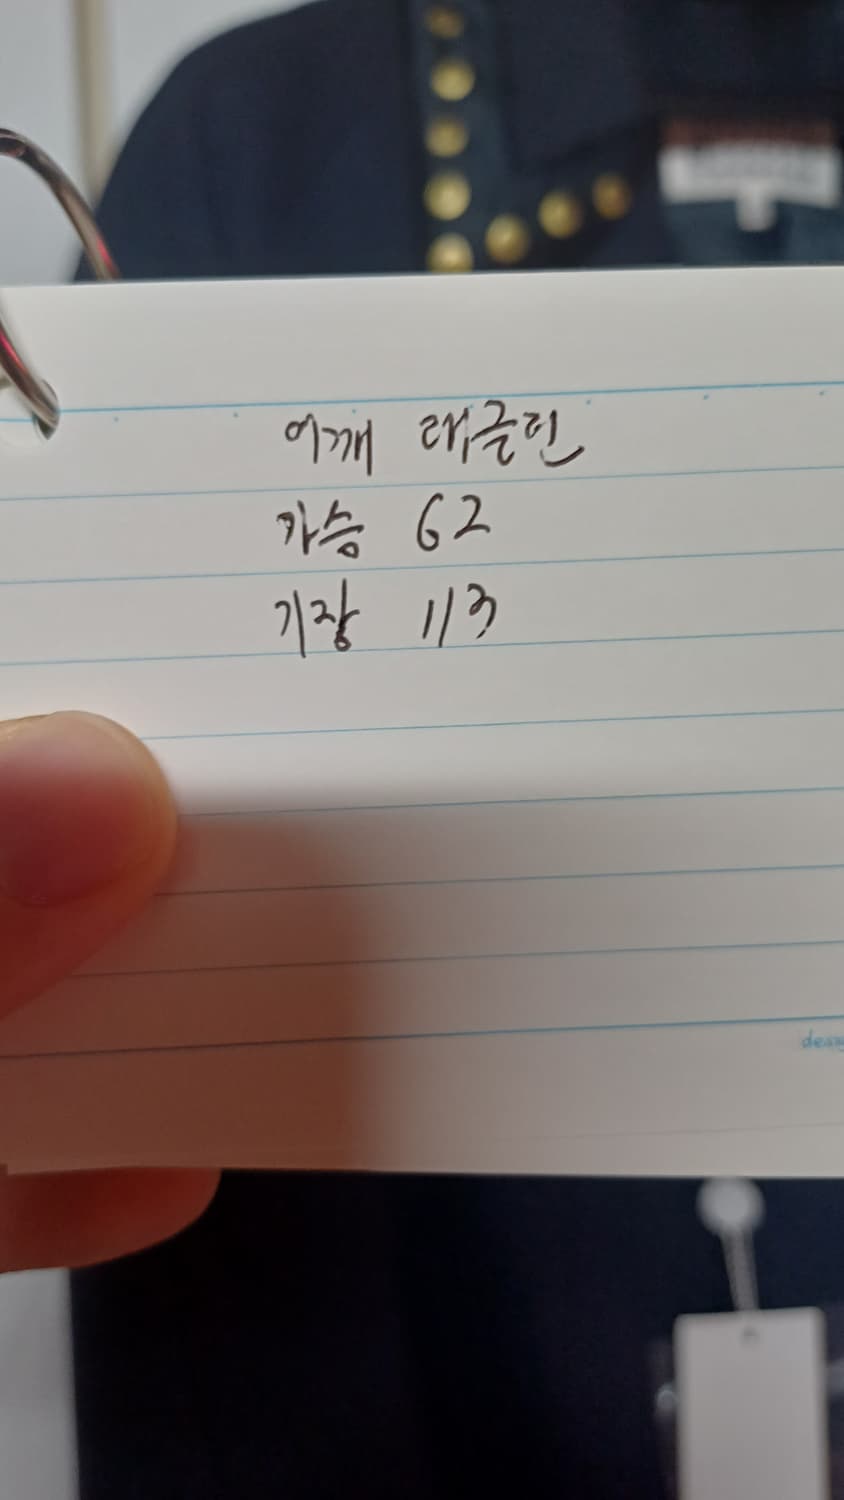 어깨 래글런
가슴 62
기장 113